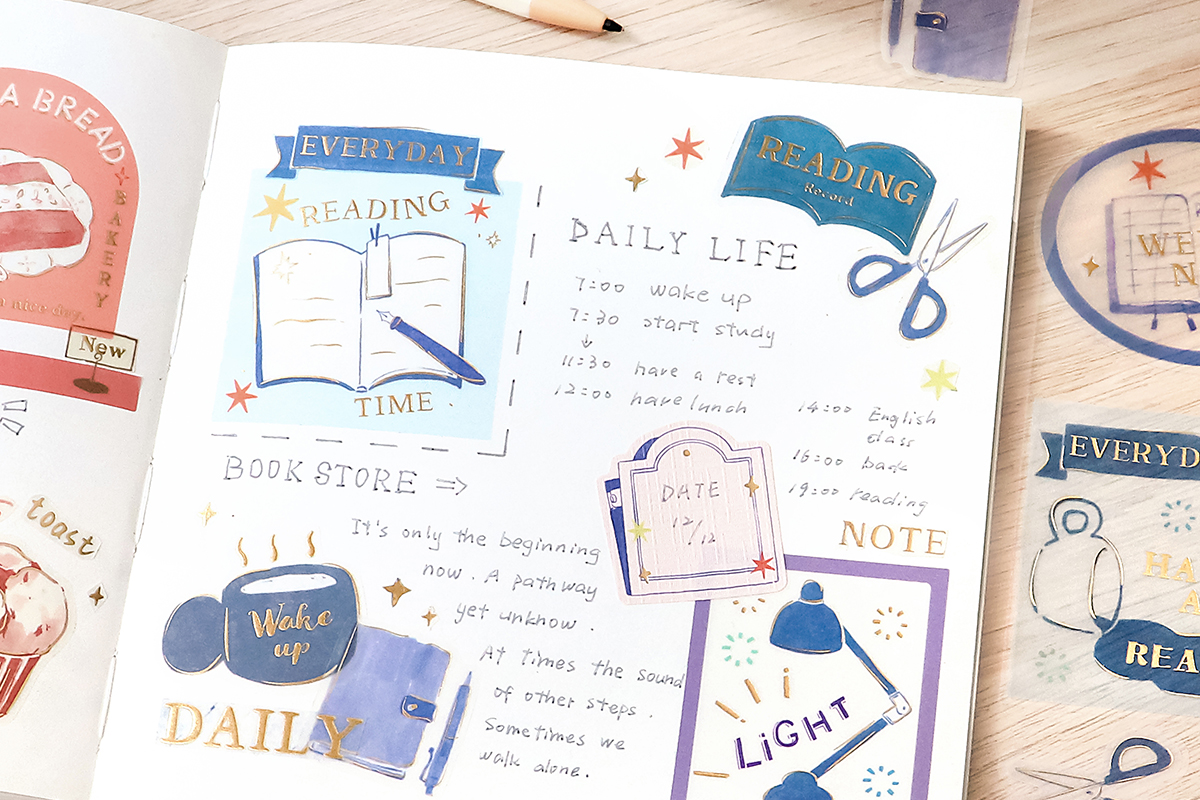 A BREAD
BAKERY
nice day.
New
toast
EVERYDAY
READING
TIME
BOOK STORE ⇒
READING
Record
DAILY LIFE
7:00 wake up
7:30 start study
↓
11:30 have a rest
12:00 have lunch
14:00 English
class
16:00 back
19:00 reading
DATE
12/12
NOTE
It's only the beginning
now. A pathway
yet unknow.
At times the sound
of other steps.
sometimes we
walk alone.
Wake
up
DAILY
LiGHT
EVERYD
REA